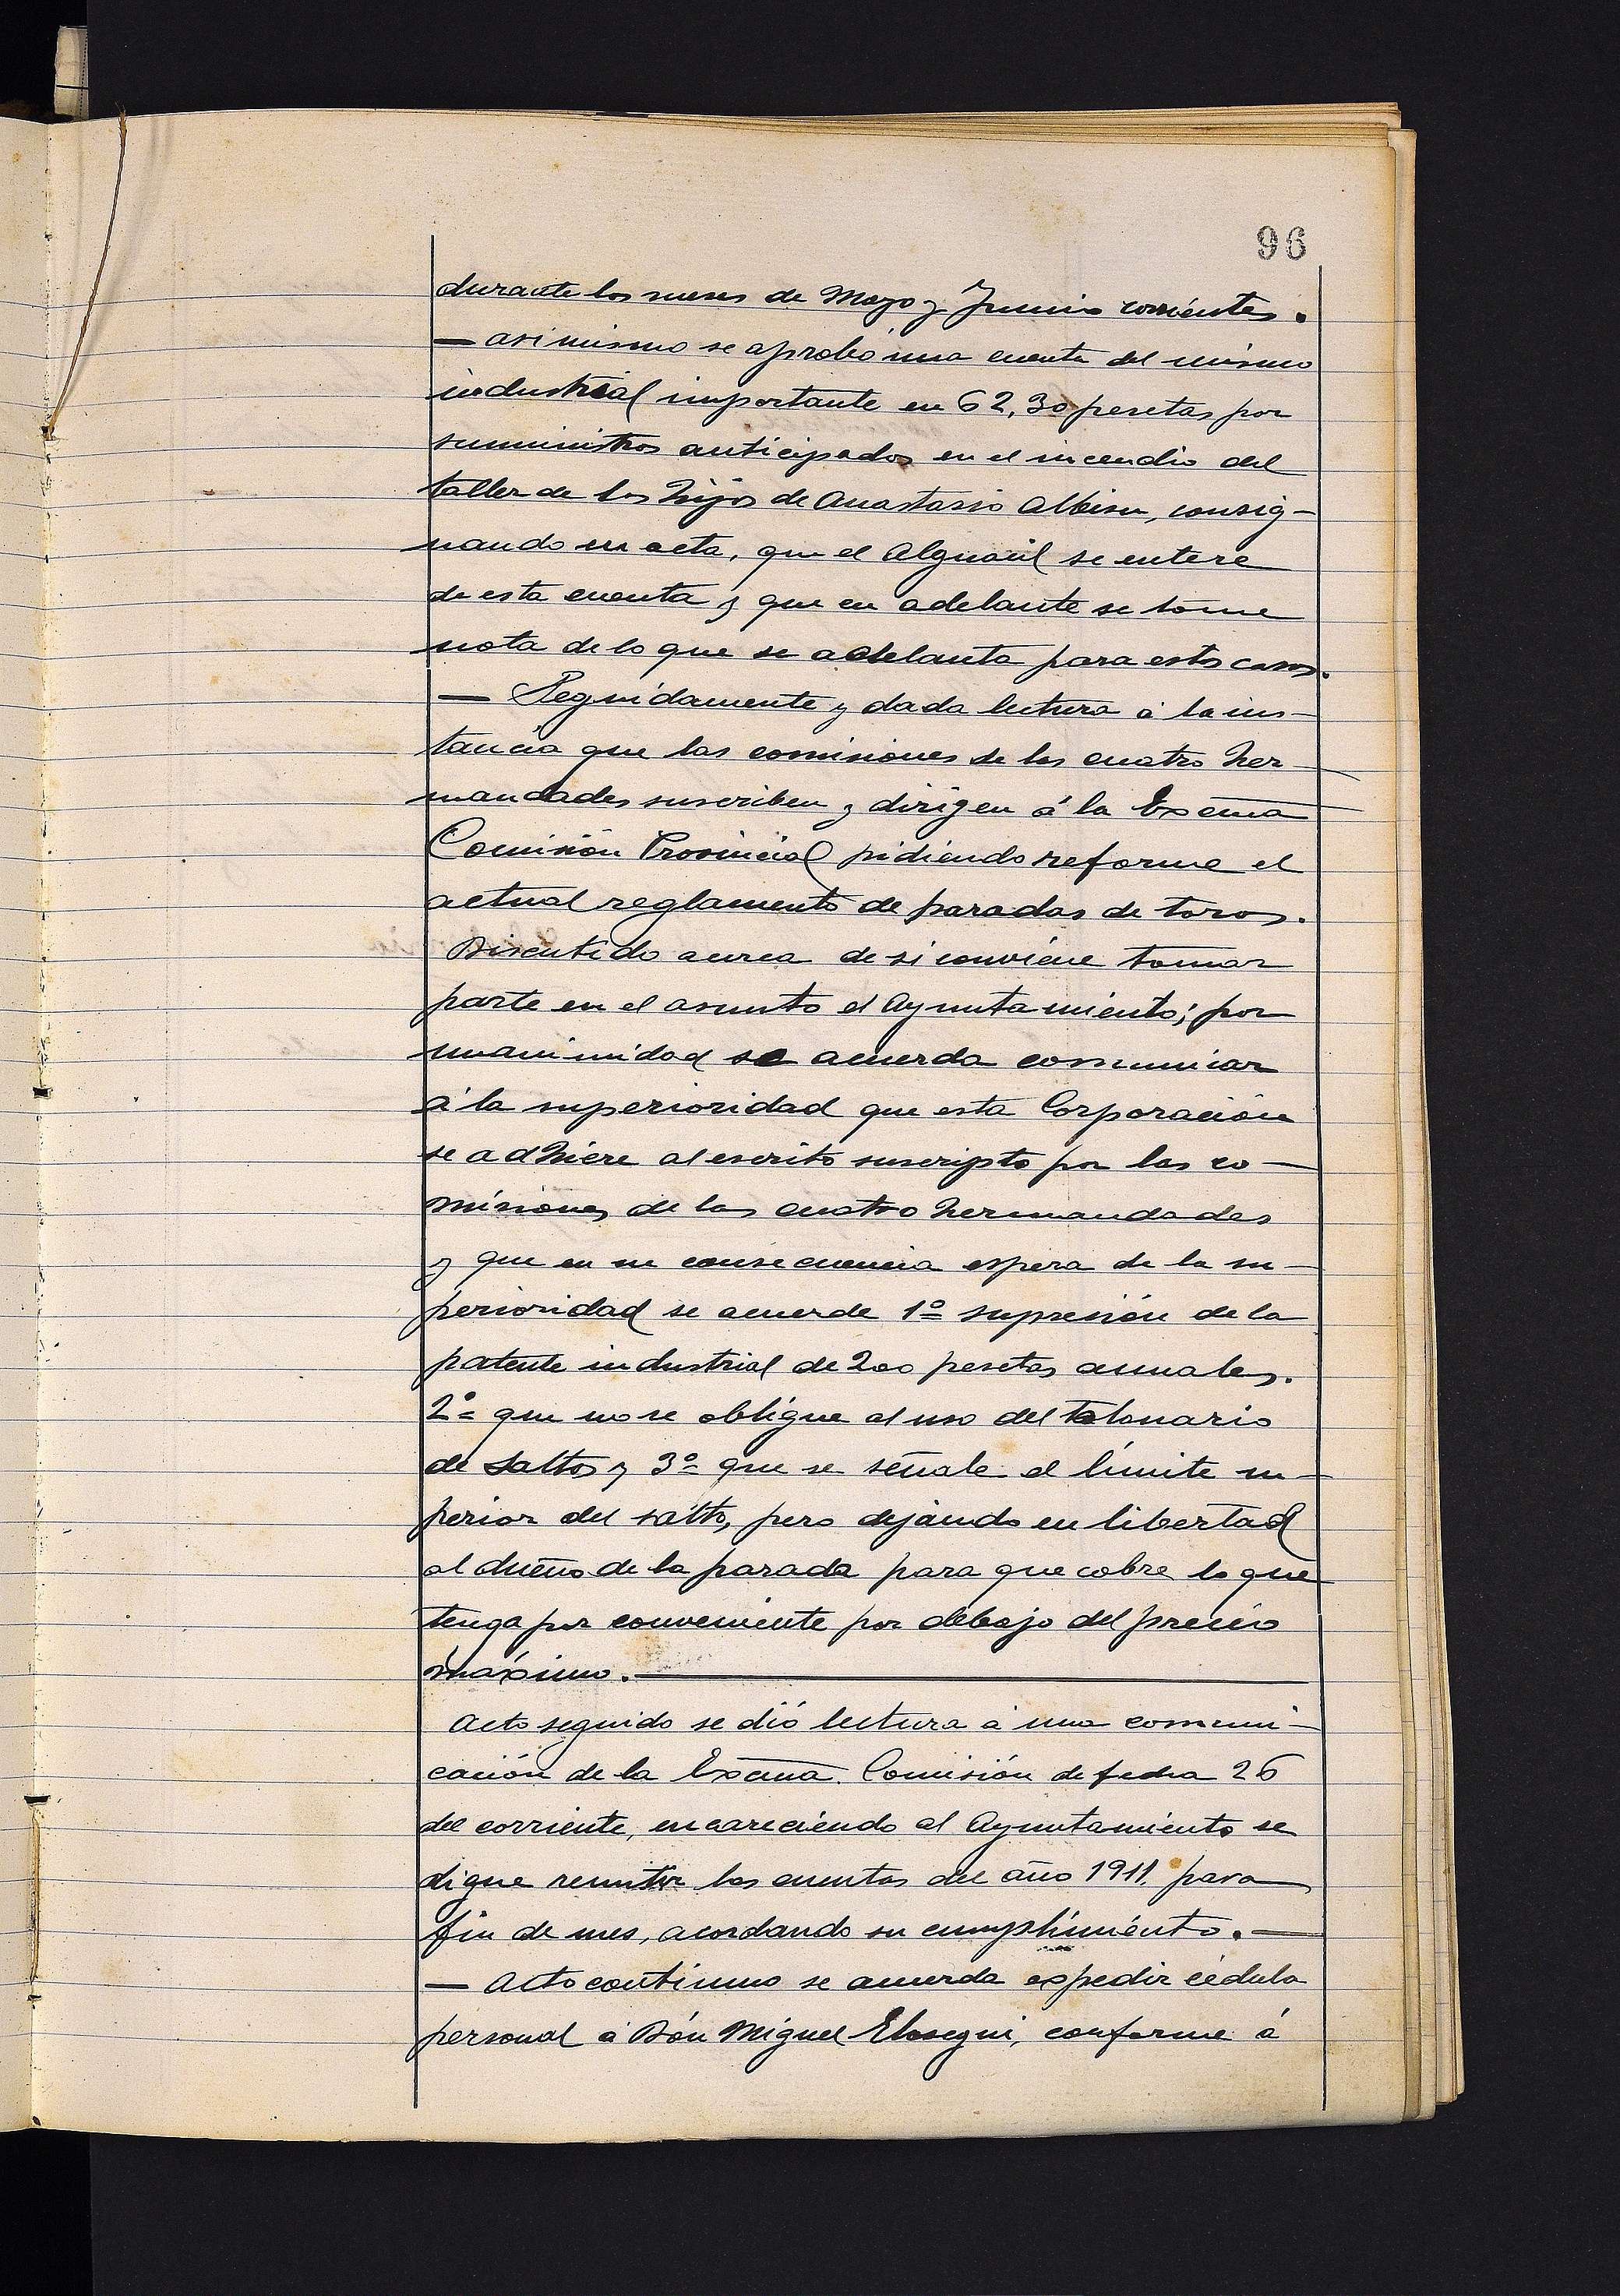 96
durante los meses de Mayo y Junio corrientes.
— asi mismo se aprobó una cuenta del mismo
industrial importante en 62,30 pesetas por
suministros anticipados en el incendio del
taller de los hijos de Anastasio Albisu, consig-
nando en acta, que el Alguacil se entere
de esta cuenta y que en adelante se tome
nota de lo que se adelanta para estos casos.
— Seguidamente y dada lectura á la ins-
tancia que las comisiones de las cuatro her-
mandades suscriben y dirigen á la Excma
Comisión Provincial pidiendo reforme el
actual reglamento de paradas de toros.
Discutido acerca de si conviene tomar
parte en el asunto el Ayuntamiento; por
unanimidad se acuerda comunicar
á la superioridad que esta Corporación
se adhiere al escrito suscripto por las co-
misiones de las cuatro hermandades
y que en su consecuencia espera de la su-
perioridad se acuerde 1º supresión de la
patente industrial de 200 pesetas anuales.
2º que no se obligue al uso del talonario
de saltos y 3º que se señale el límite su-
perior del salto, pero dejando en libertad
al dueño de la parada para que cobre lo que
tenga por conveniente por debajo del precio
máximo.
Acto seguido se dió lectura á una comuni-
cación de la Excma. Comisión de fecha 26
del corriente, encareciendo al Ayuntamiento se
digne remitir las cuentas del año 1911, para
fin de mes, acordando su cumplimiento. —
— Acto continuo se acuerda expedir cédula
personal á Dón Miguel Elosegui, conforme á